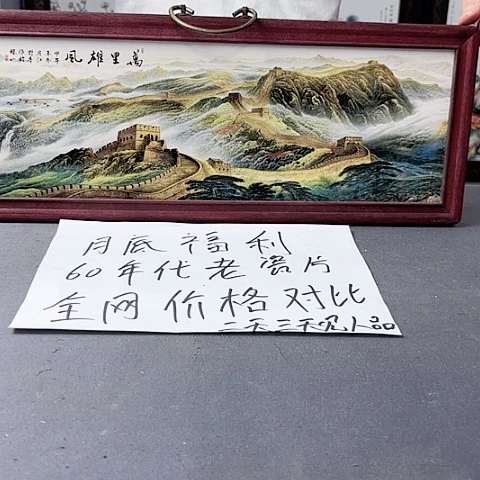 萬里雄風
月底福利
60年代老瓷片
全网价格对比
二天三天见人品